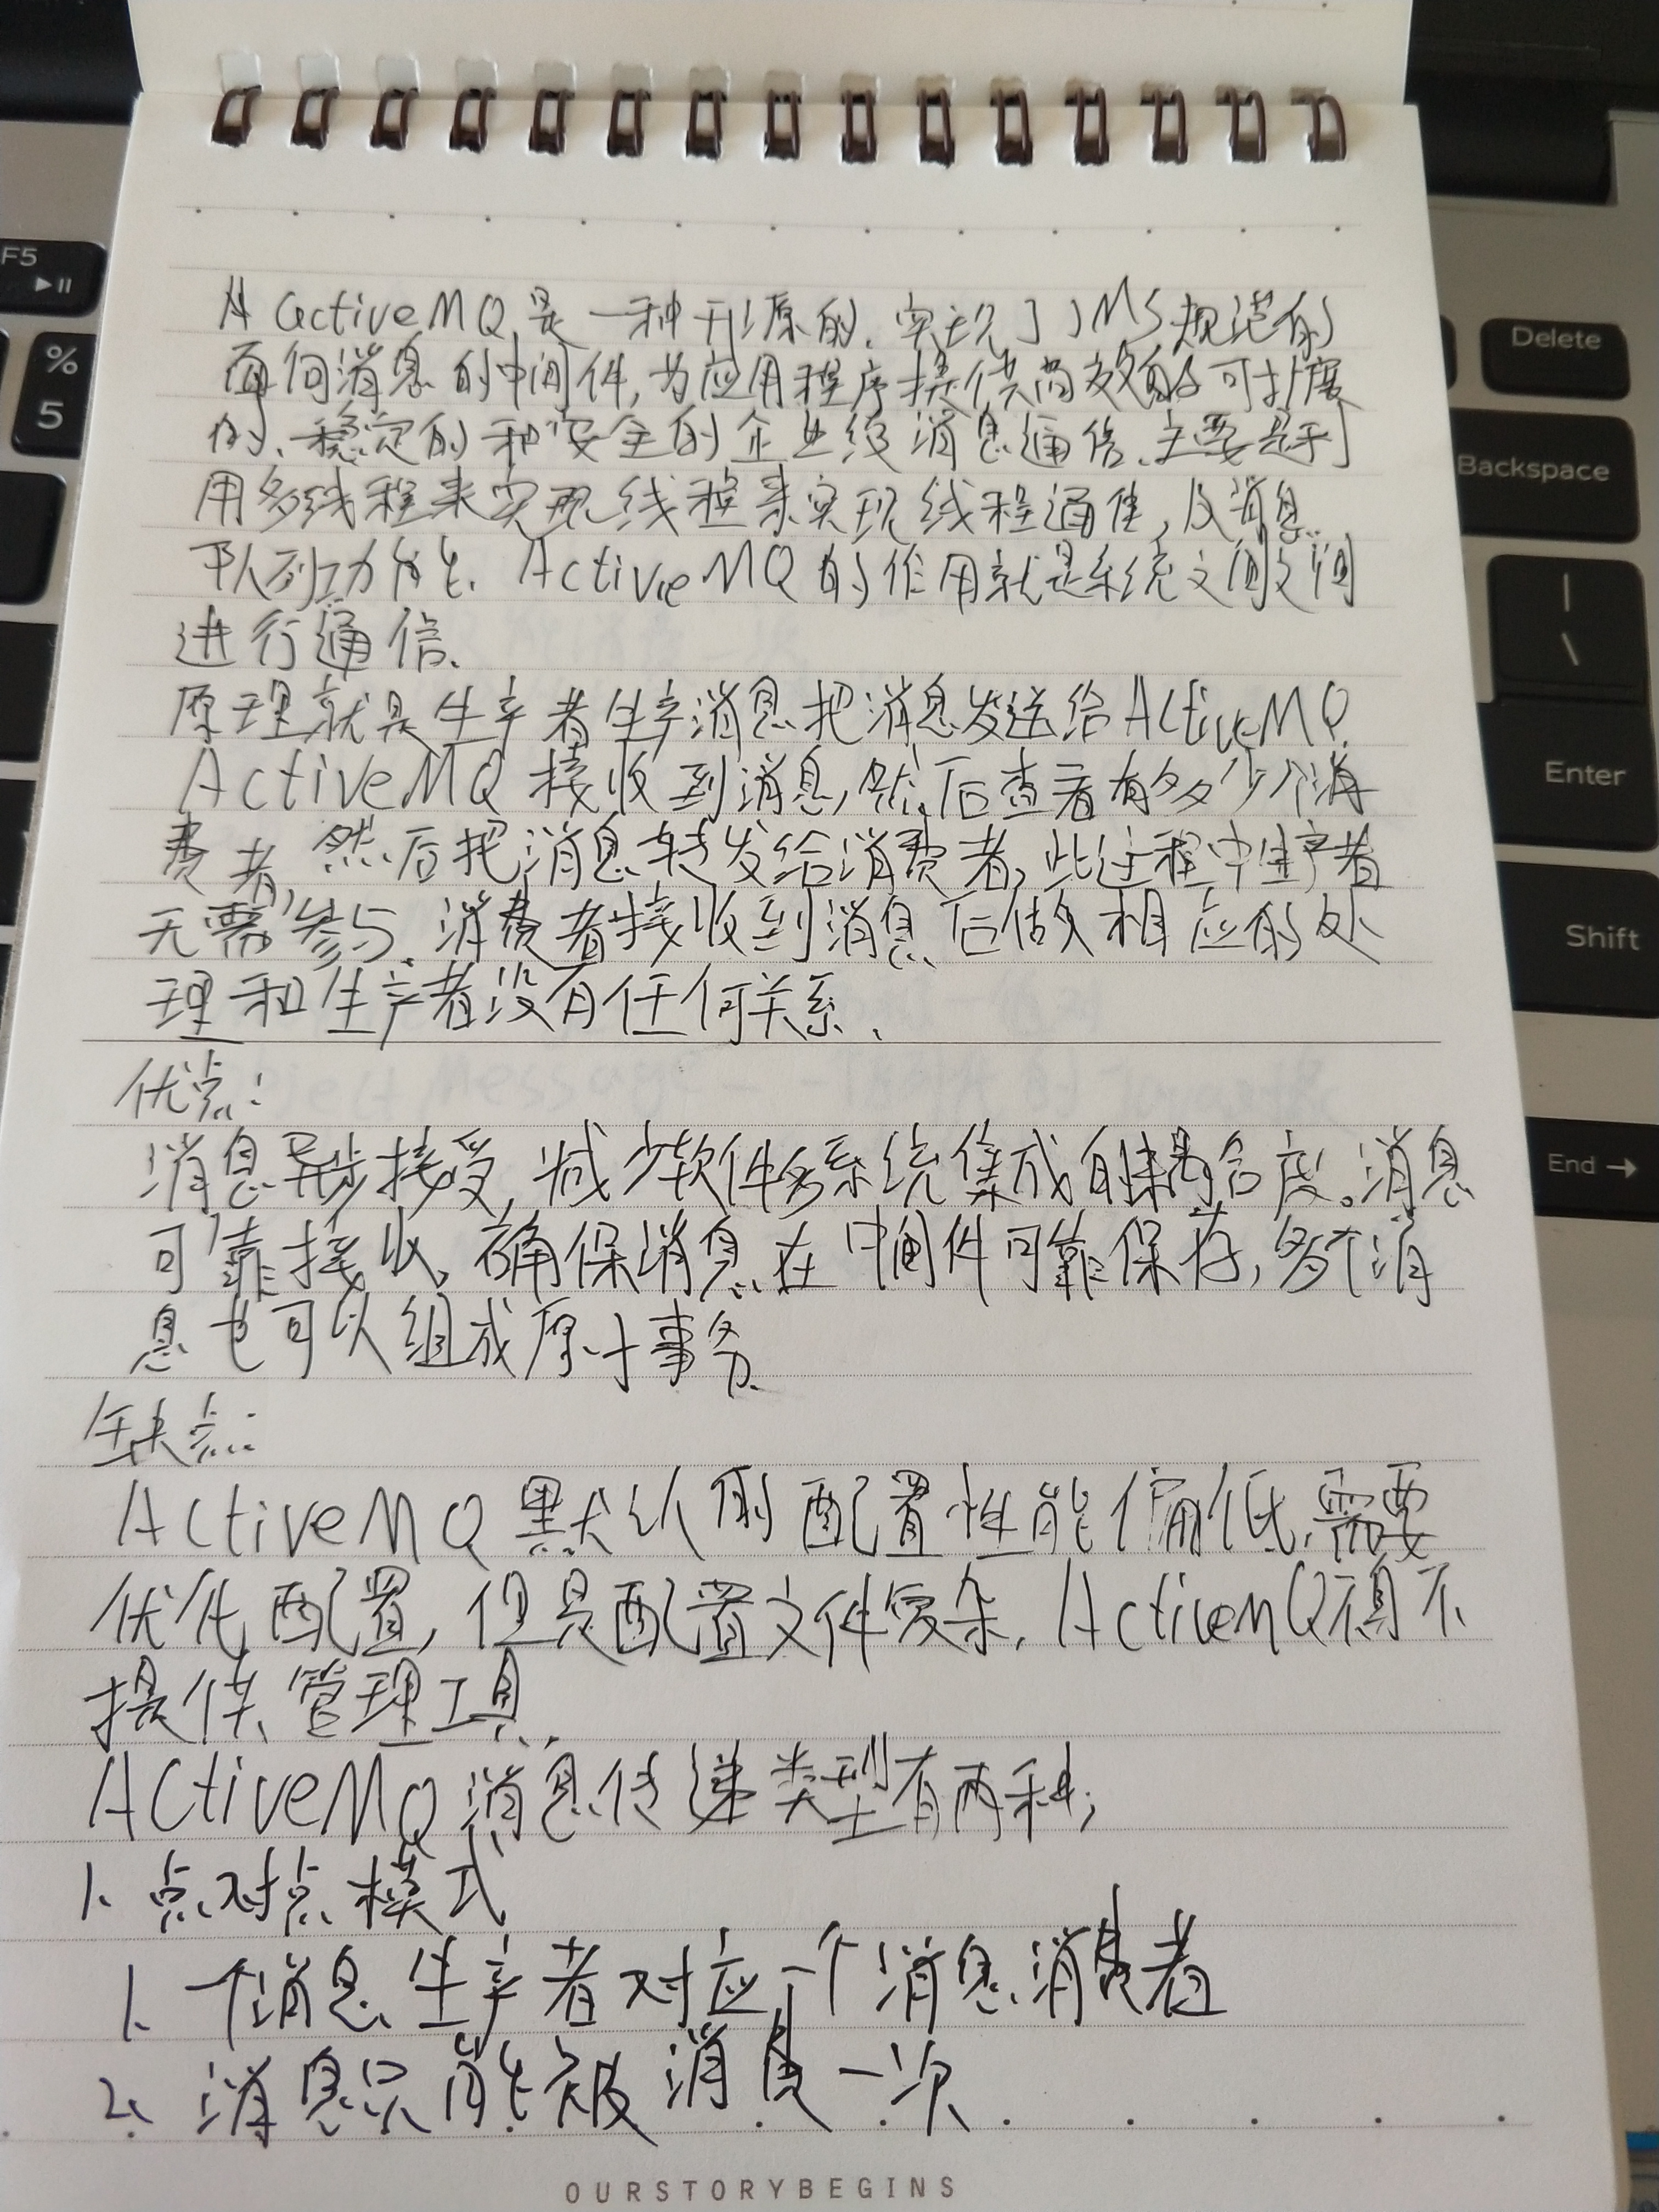 ActiveMQ是一种开源的,实现了JMS规范的
面向消息的中间件,为应用程序提供高效的可扩展
的、稳定的和安全的企业级消息通信.主要是利
用多线程来实现线程来实现线程通信,及消息
队列功能. ActiveMQ的作用就是系统之间之间
进行通信.
原理就是生产者生产消息把消息发送给ActiveMQ.
ActiveMQ接收到消息,然后查看有多少个消
费者,然后把消息转发给消费者,此过程中生产者
无需参与.消费者接收到消息后做相应的处
理和生产者没有任何关系.
优点:
消息异步接受,减少软件多系统集成的耦合度。消息
可靠接收,确保消息在中间件可靠保存,多个消
息也可以组成原子事务.
缺点:
ActiveMQ默认的配置性能偏低,需要
优化配置,但是配置文件复杂,ActiveMQ不
提供管理工具.
ActiveMQ消息传递类型有两种;
1.点对点模式
1.一个消息生产者对应一个消息消费者
2.消息只能被消费一次
OURSTORYBEGINS
F5
%
5
Delete
Backspace
|
\
Enter
Shift
End →